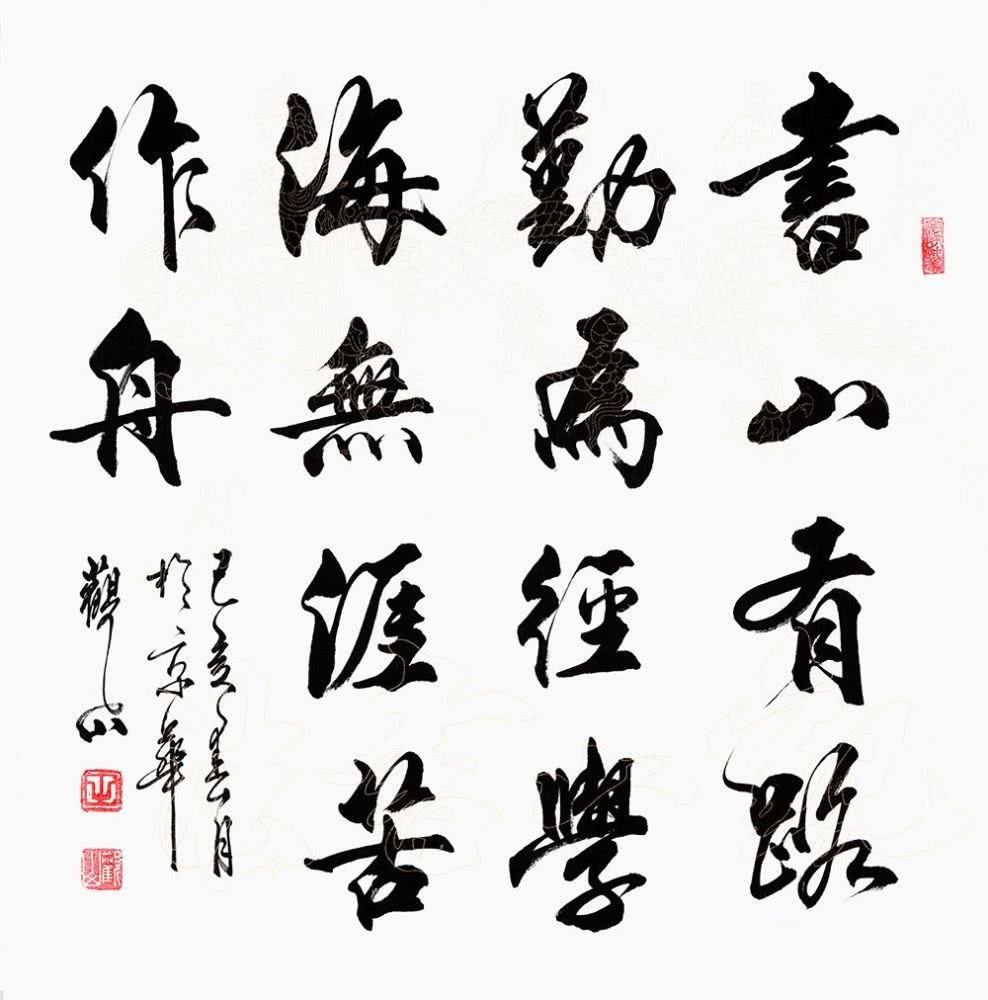 書山有路
勤為徑學
海無涯苦
作舟
己亥年春月
於京華
觀山